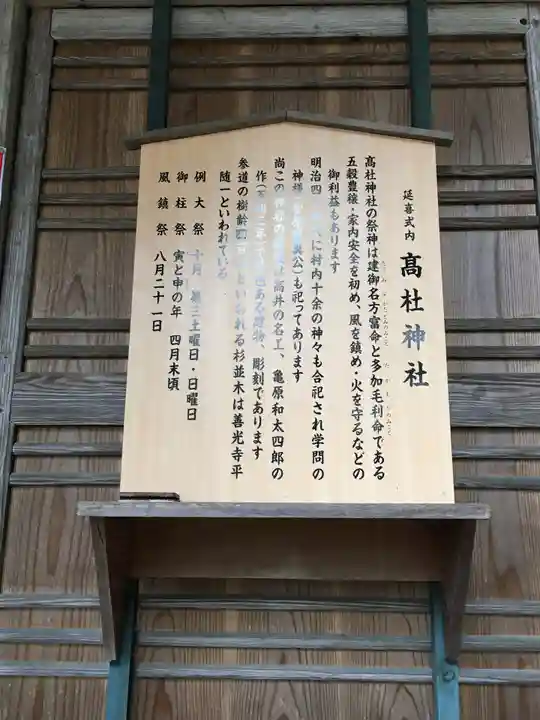 延喜式内 髙杜神社
髙杜神社の祭神は建御名方富命と多加毛利命である
五穀豊穣・家内安全を初め、風を鎮め・火を守るなどの
御利益もあります
明治四 に村内十余の神々も合祀され学問の
神様 公)も祀ってあります
尚この 高井の名工、亀原和太四郎の
作( ある建物、彫刻であります
参道の樹齢 といわれる杉並木は善光寺平
随一といわれている
例大祭 十月 第三土曜日・日曜日
御柱祭 寅と申の年 四月末頃
風鎮祭 八月二十一日